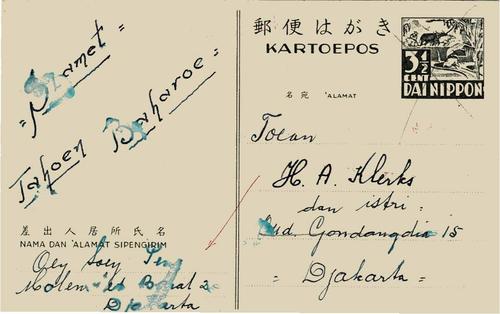 "Slamet"
Tahoen Baharoe =
差出人居所氏名
NAMA DAN 'ALAMAT SIPENGIRIM
Oey Soey
Molenvliet
Djakarta
郵便はがき
KARTOEPOS
3½
CENT
DAI NIPPON
名宛 'ALAMAT
Toean
H. A. Klerks
dan istri =
Oud. Gondangdia 15
= Djakarta =